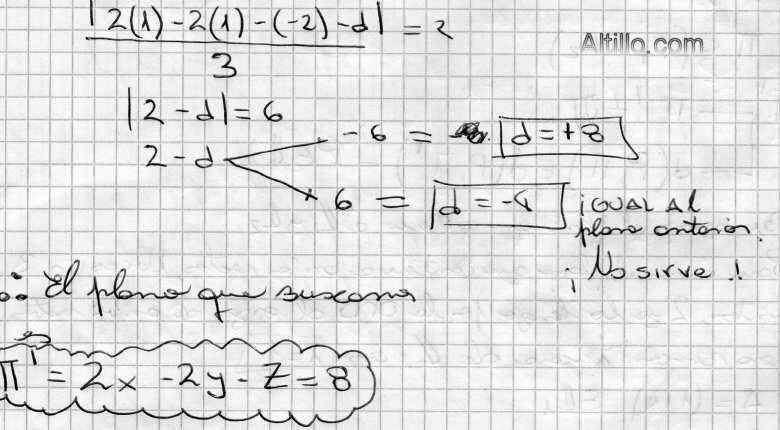 |2(1)-2(1)-(-2)-d| = 2
3
Altillo.com
|2-d|=6
2-d
-6 = d=+8
6 = d=-4 iGUAL Al
plano anterior.
¡No sirve!
∴ El plano que buscamos
π' = 2x -2y - z = 8